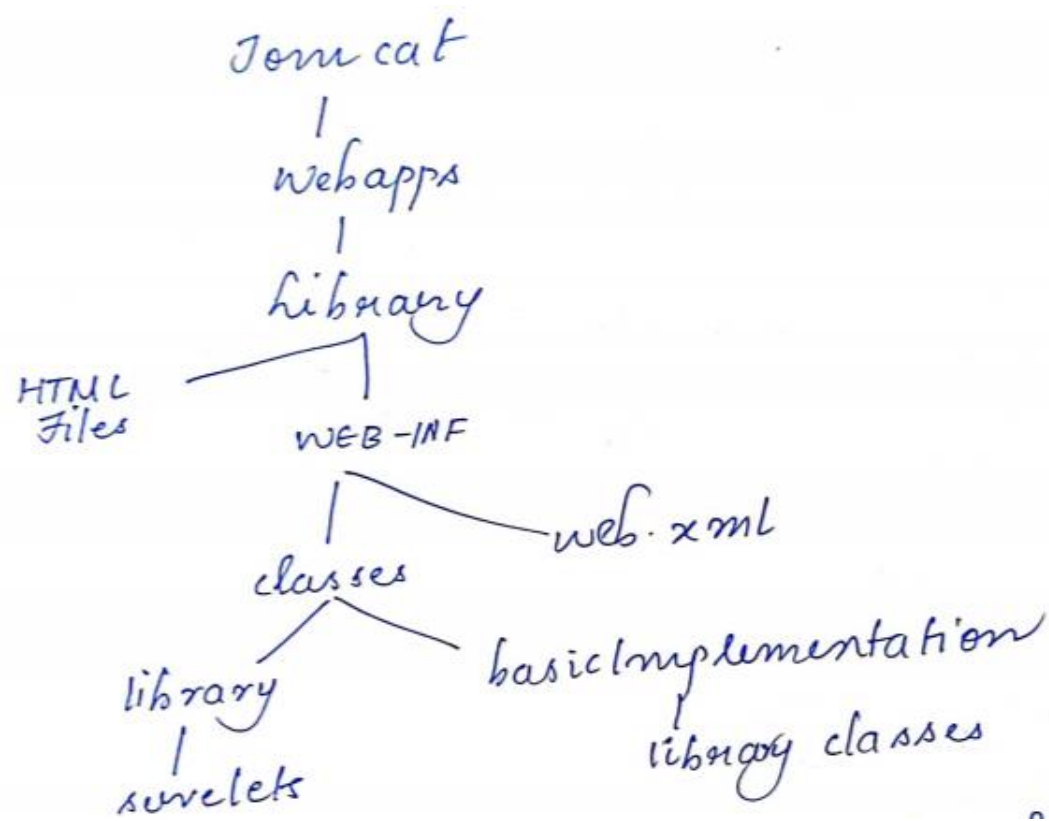 Tomcat
Webapps
Library
HTML
Files
WEB-INF
classes
web.xml
library
basicImplementation
servelets
library classes